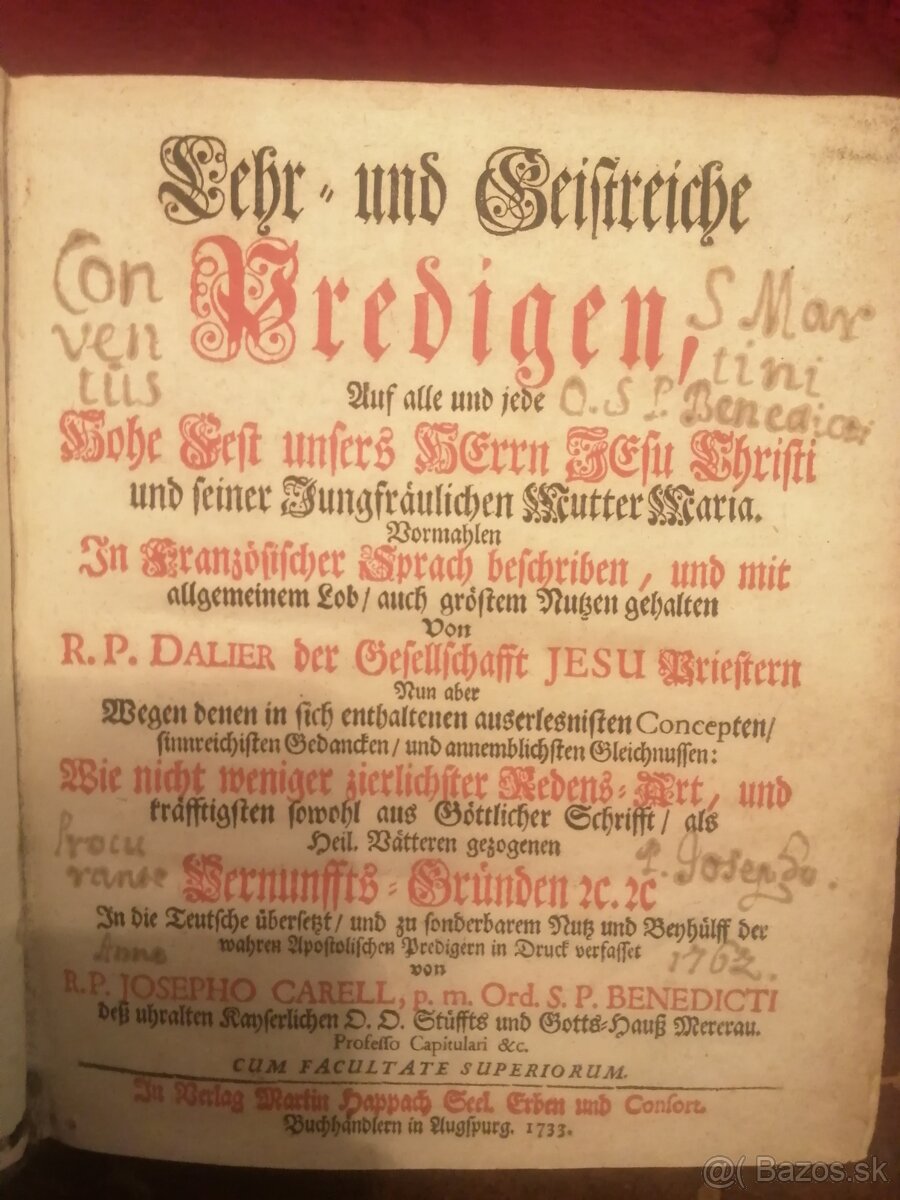 Lehr- und Geistreiche
Predigen,
Con
ven
tus
S Mar
tini
O. S P. Benedicti
Auf alle und jede
Hohe Fest unsers HErrn JEsu Christi
und seiner Jungfräulichen Mutter Maria.
Vormahlen
In Französischer Sprach beschriben, und mit
allgemeinem Lob / auch gröstem Nutzen gehalten
Von
R. P. DALIER der Gesellschafft JESU Priestern
Nun aber
Wegen denen in sich enthaltenen auserlesnisten Concepten /
sinnreichisten Gedancken / und annemblichsten Gleichnussen:
Wie nicht weniger zierlichster Redens-Art, und
kräfftigsten sowohl aus Göttlicher Schrifft / als
Heil. Vätteren gezogenen
Procu
rante
P. Josepho.
Vernunffts-Gründen ꝛc. ꝛc
In die Teutsche übersetzt / und zu sonderbarem Nutz und Beyhülff der
wahren Apostolischen Predigern in Druck verfasset
Anno
1762.
von
R. P. JOSEPHO CARELL, p. m. Ord. S. P. BENEDICTI
deß uhralten Kayserlichen O. O. Stüffts und Gotts-Hauß Mererau.
Professo Capitulari &c.
CUM FACULTATE SUPERIORUM.
In Verlag Martin Happach Seel. Erben und Consort.
Buchhändlern in Augspurg. 1733.
@( Bazos.sk